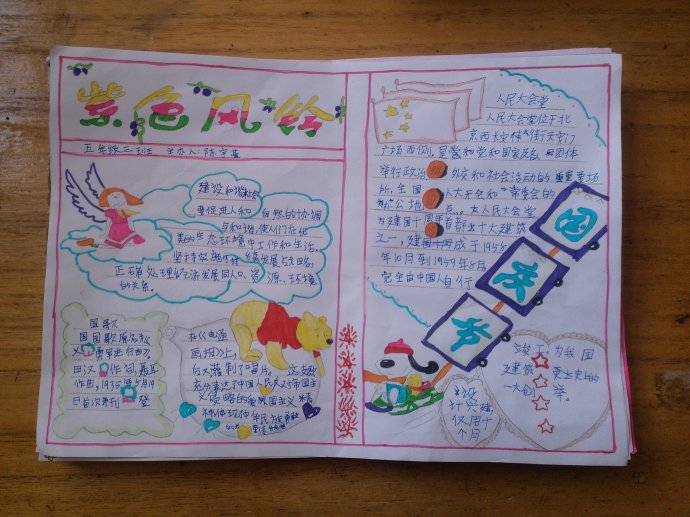 紫色风铃
五年级三班 主办人:陈宇
建设和谐社会
要促进人和 自然的协调
与和谐,使人们在优
美的生态环境中工作和生活。
坚持实施可持续发展战略,
正确处理经济发展同人口、资源、环境
的关系。
国歌
国国歌原名《
义勇军进行曲》,
田汉 作词,聂耳
作曲,1935年5月19
日首次刊 登
在《电通
画报》上,
灌制了唱片。 这支歌
充分表达了中国人民反对帝国主
义侵略的爱国主义精
神
人民大会堂
人民大会堂位于北
京西长安街 天安门
广场西侧,是党和国家 团体
举行政治 外交和社会活动的重要场
所,全国 人大开会和 常委会的
办公地 点。人民大会堂
为建国十周年首都十大建筑
之一,建 成于1958
年10月到1959年8月,
完全由中国人自行
国
庆
节
设
计兴建,
仅用十
个月
竣工,为我国
建筑 史上的
一大创 举。